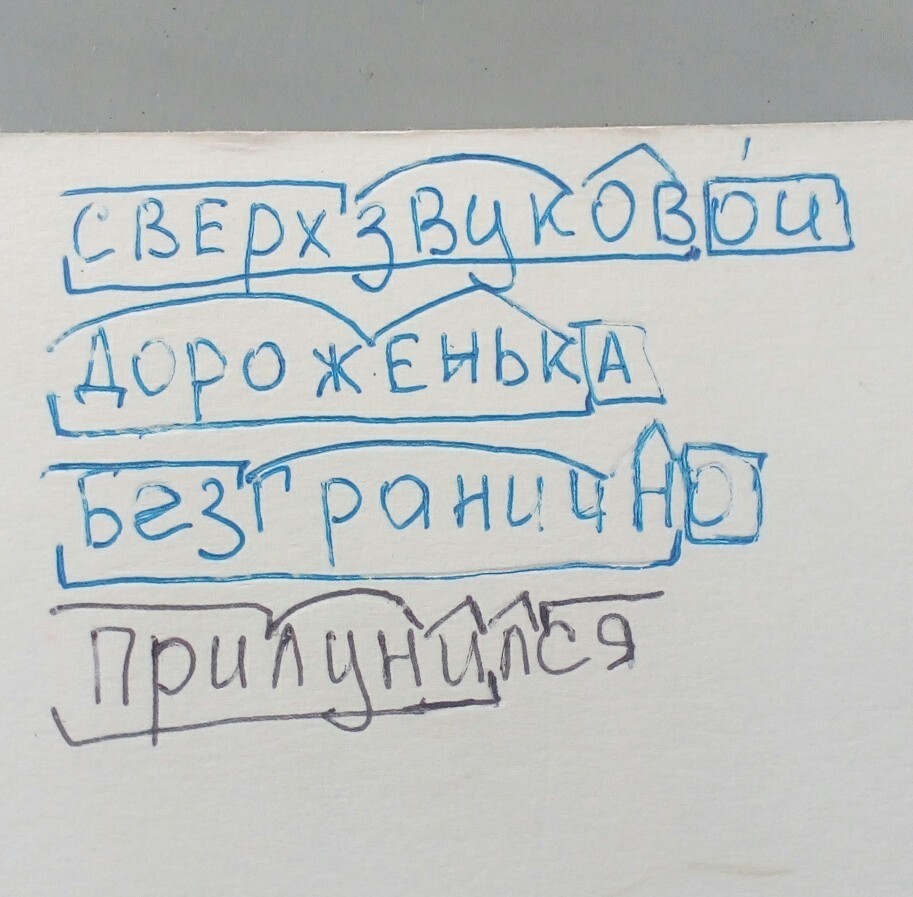 сверхзвуковой
дороженька
Безгранично
прилунился